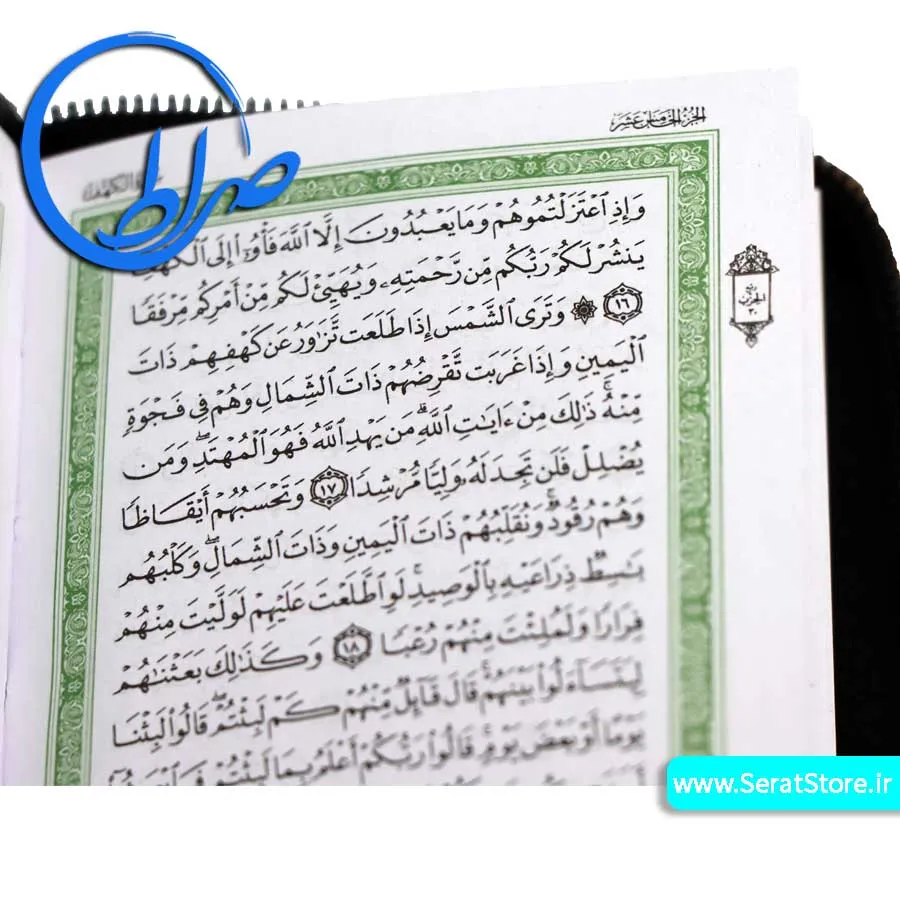 صراط
الجزء الخامس عشر
سورة الكهف
وَإِذِ ٱعْتَزَلْتُمُوهُمْ وَمَا يَعْبُدُونَ إِلَّا ٱللَّهَ فَأْوُۥٓا۟ إِلَى ٱلْكَهْفِ
يَنشُرْ لَكُمْ رَبُّكُم مِّن رَّحْمَتِهِۦ وَيُهَيِّئْ لَكُم مِّنْ أَمْرِكُم مِّرْفَقًا
١٦ ۞ وَتَرَى ٱلشَّمْسَ إِذَا طَلَعَت تَّزَٰوَرُ عَن كَهْفِهِمْ ذَاتَ
ٱلْيَمِينِ وَإِذَا غَرَبَت تَّقْرِضُهُمْ ذَاتَ ٱلشِّمَالِ وَهُمْ فِى فَجْوَةٍ
مِّنْهُ ۚ ذَٰلِكَ مِنْ ءَايَٰتِ ٱللَّهِ ۗ مَن يَهْدِ ٱللَّهُ فَهُوَ ٱلْمُهْتَدِ ۖ وَمَن
يُضْلِلْ فَلَن تَجِدَ لَهُۥ وَلِيًّا مُّرْشِدًا ١٧ وَتَحْسَبُهُمْ أَيْقَاظًا
وَهُمْ رُقُودٌ ۚ وَنُقَلِّبُهُمْ ذَاتَ ٱلْيَمِينِ وَذَاتَ ٱلشِّمَالِ ۖ وَكَلْبُهُم
بَٰسِطٌ ذِرَاعَيْهِ بِٱلْوَصِيدِ ۚ لَوِ ٱطَّلَعْتَ عَلَيْهِمْ لَوَلَّيْتَ مِنْهُمْ
فِرَارًا وَلَمُلِئْتَ مِنْهُمْ رُعْبًا ١٨ وَكَذَٰلِكَ بَعَثْنَٰهُمْ
لِيَتَسَآءَلُوا۟ بَيْنَهُمْ ۚ قَالَ قَآئِلٌ مِّنْهُمْ كَمْ لَبِثْتُمْ ۖ قَالُوا۟ لَبِثْنَا
يَوْمًا أَوْ بَعْضَ يَوْمٍ ۚ قَالُوا۟ رَبُّكُمْ أَعْلَمُ بِمَا لَبِثْتُمْ
ربع
الحزب
٣٠
www.SeratStore.ir